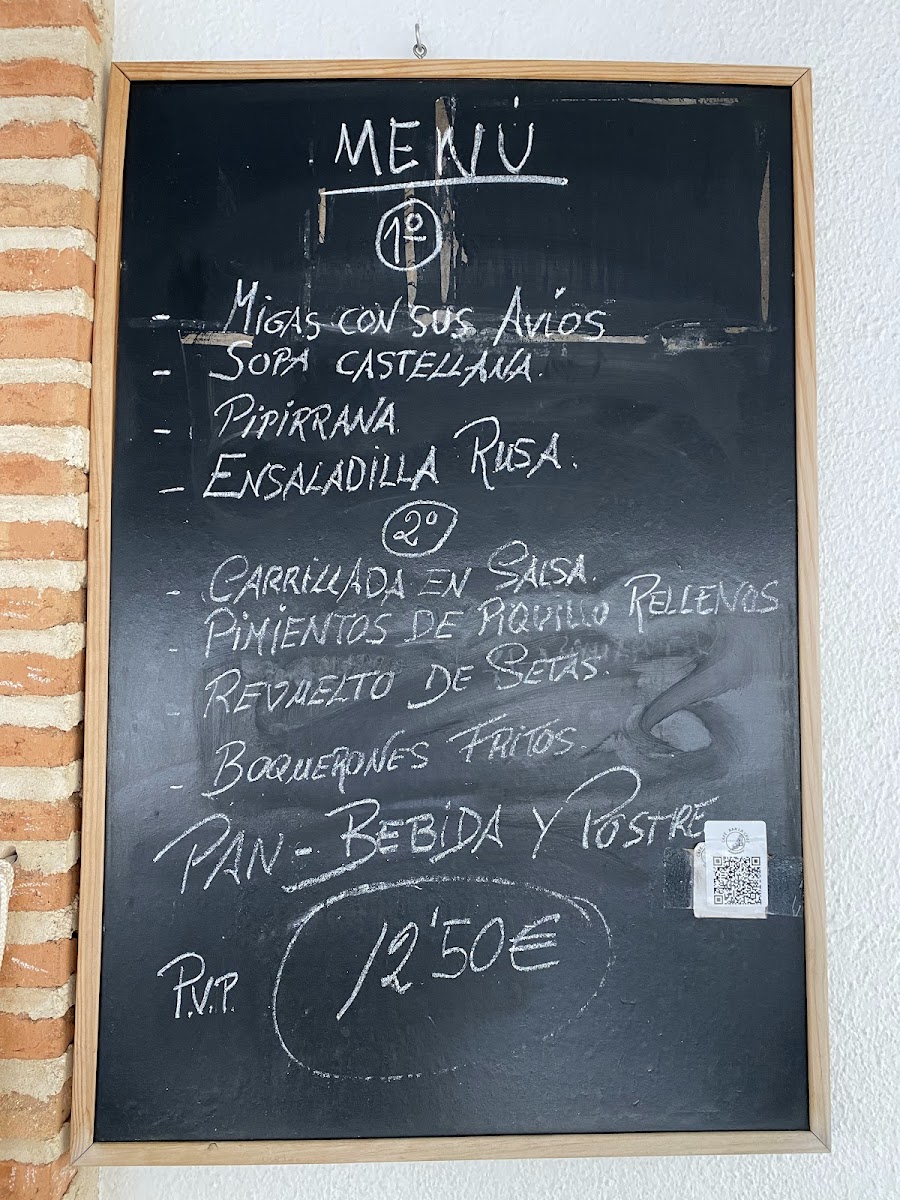 MENÚ
1º
- MIGAS CON SUS AVÍOS
- SOPA CASTELLANA.
- PIPIRRANA.
- ENSALADILLA RUSA.
2º
- CARRILLADA EN SALSA.
- PIMIENTOS DE PIQUILLO RELLENOS
- REVUELTO DE SETAS.
- BOQUERONES FRITOS.
PAN - BEBIDA Y POSTRE
P.V.P. 12'50€